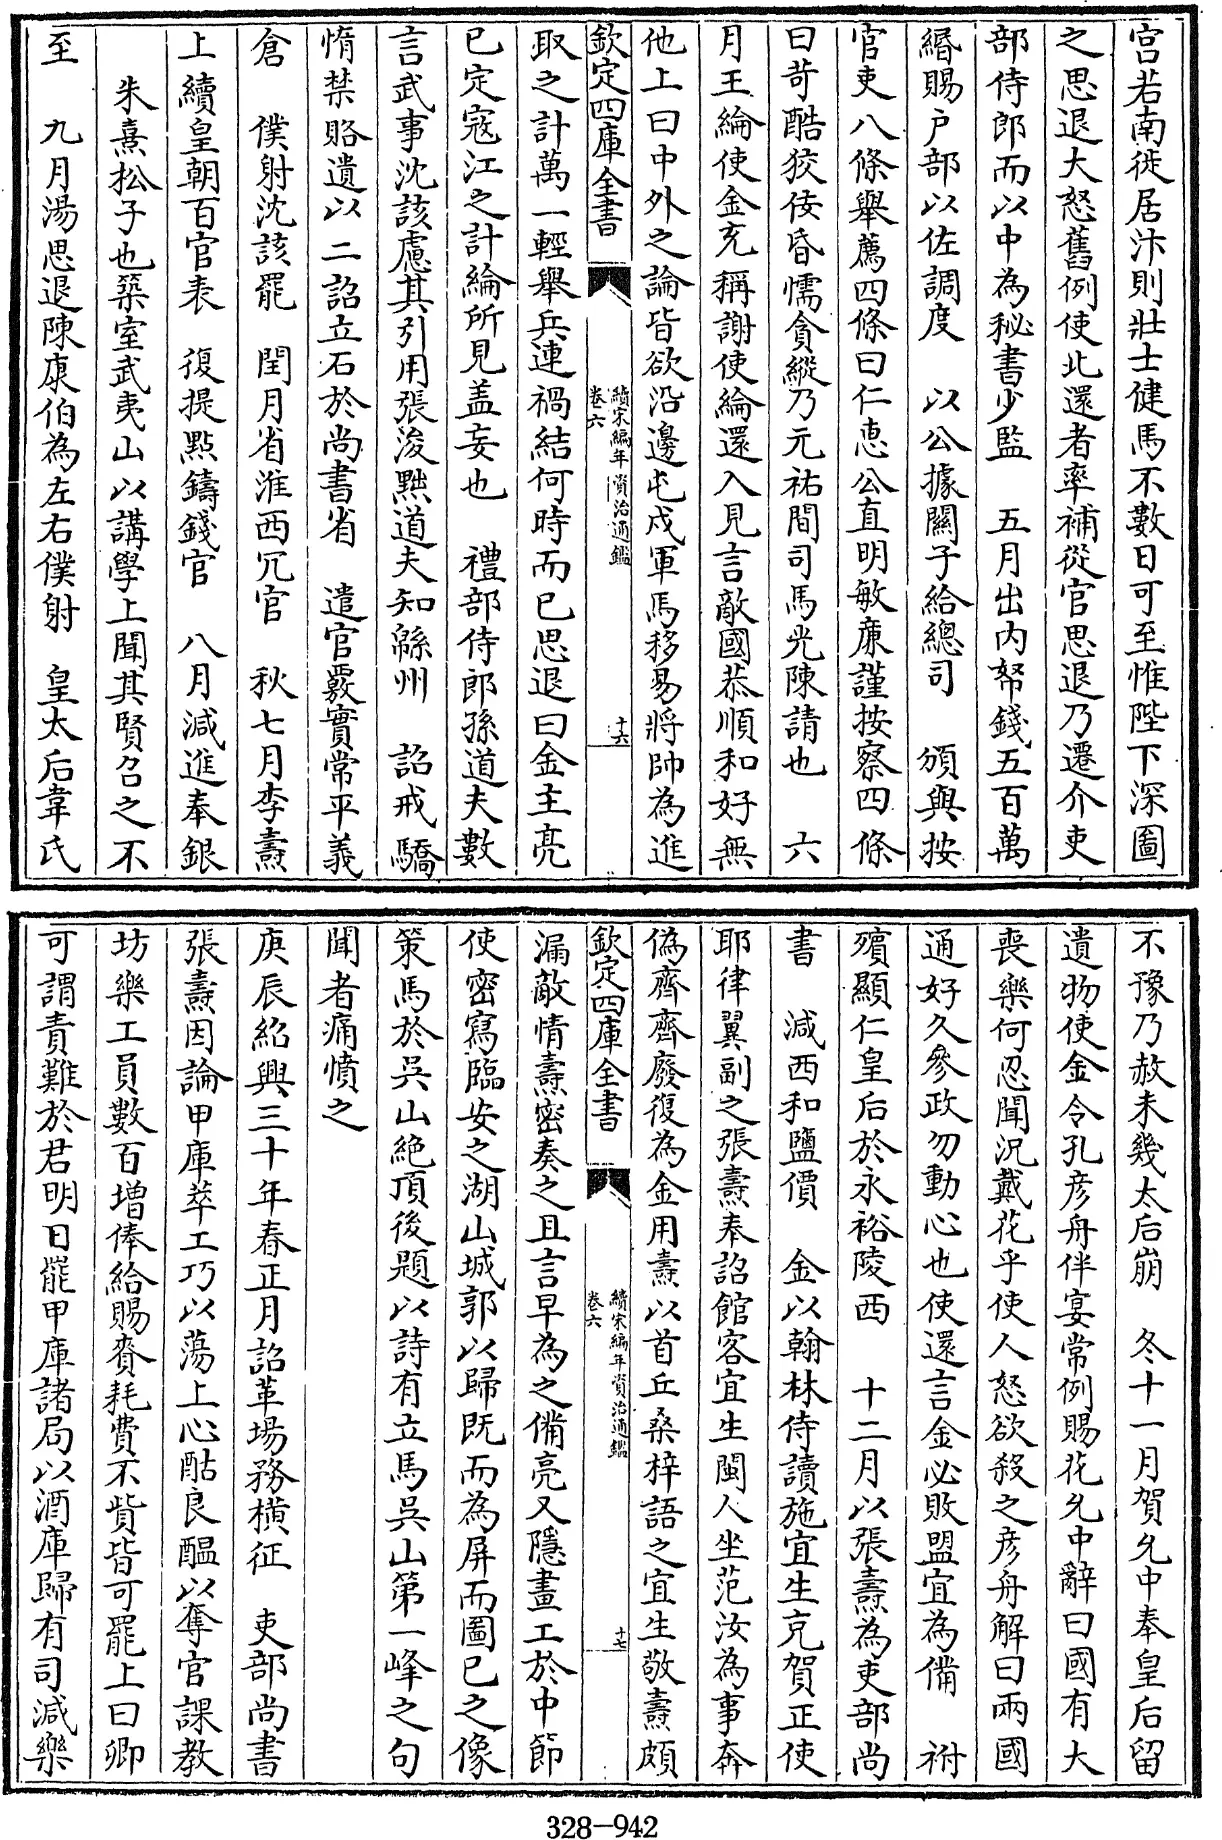 宫若南徙居汴則壯士健馬不數日可至惟陛下深圖
之思退大怒舊例使北還者率補從官思退乃遷介吏
部侍郎而以中為秘書少監　五月出内帑錢五百萬
緡賜户部以佐調度　以公據關子給總司　頒與按
官吏八條舉薦四條曰仁恵公直明敏亷謹按察四條
曰苛酷狡佞昏懦貪縱乃元祐間司馬光陳請也　六
月王綸使金充稱謝使綸還入見言敵國恭順和好無
他上曰中外之論皆欲沿邊屯戍軍馬移易將帥為進
欽定四庫全書　續宋編年資治通鑑　卷六　十六
取之計萬一輕舉兵連禍結何時而已思退曰金主亮
已定宼江之計綸所見盖妄也　禮部侍郎孫道夫數
言武事沈該慮其引用張浚黜道夫知緜州　詔戒驕
惰禁賂遺以二詔立石於尚書省　遣官覈實常平義
倉　僕射沈該罷　閏月省淮西冗官　秋七月李燾
上續皇朝百官表　復提㸃鑄錢官　八月減進奉銀
朱熹松子也築室武夷山以講學上聞其賢召之不
至　九月湯思退陳康伯為左右僕射　皇太后韋氏
不豫乃赦未幾太后崩　冬十一月賀允中奉皇后留
遺物使金令孔彦舟伴宴常例賜花允中辭曰國有大
喪樂何忍聞況戴花乎使人怒欲殺之彦舟解曰兩國
通好久參政勿動心也使還言金必敗盟宜為備　祔
殯顯仁皇后於永裕陵西　十二月以張燾為吏部尚
書　減西和鹽價　金以翰林侍讀施宜生充賀正使
耶律翼副之張燾奉詔館客宜生閩人坐范汝為事奔
偽齊齊廢復為金用燾以首丘桑梓語之宜生敬燾頗
欽定四庫全書　續宋編年資治通鑑　卷六　十七
漏敵情燾密奏之且言早為之備亮又隱畫工於中節
使密寫臨安之湖山城郭以歸既而為屏而圖已之像
策馬於吳山絶頂後題以詩有立馬吳山第一峰之句
聞者痛憤之
庚辰紹興三十年春正月詔革場務横征　吏部尚書
張燾因論甲庫萃工巧以蕩上心酤良醖以奪官課教
坊樂工員數百增俸給賜賚耗費不貲皆可罷上曰卿
可謂責難於君明日罷甲庫諸局以酒庫歸有司減樂
328-942